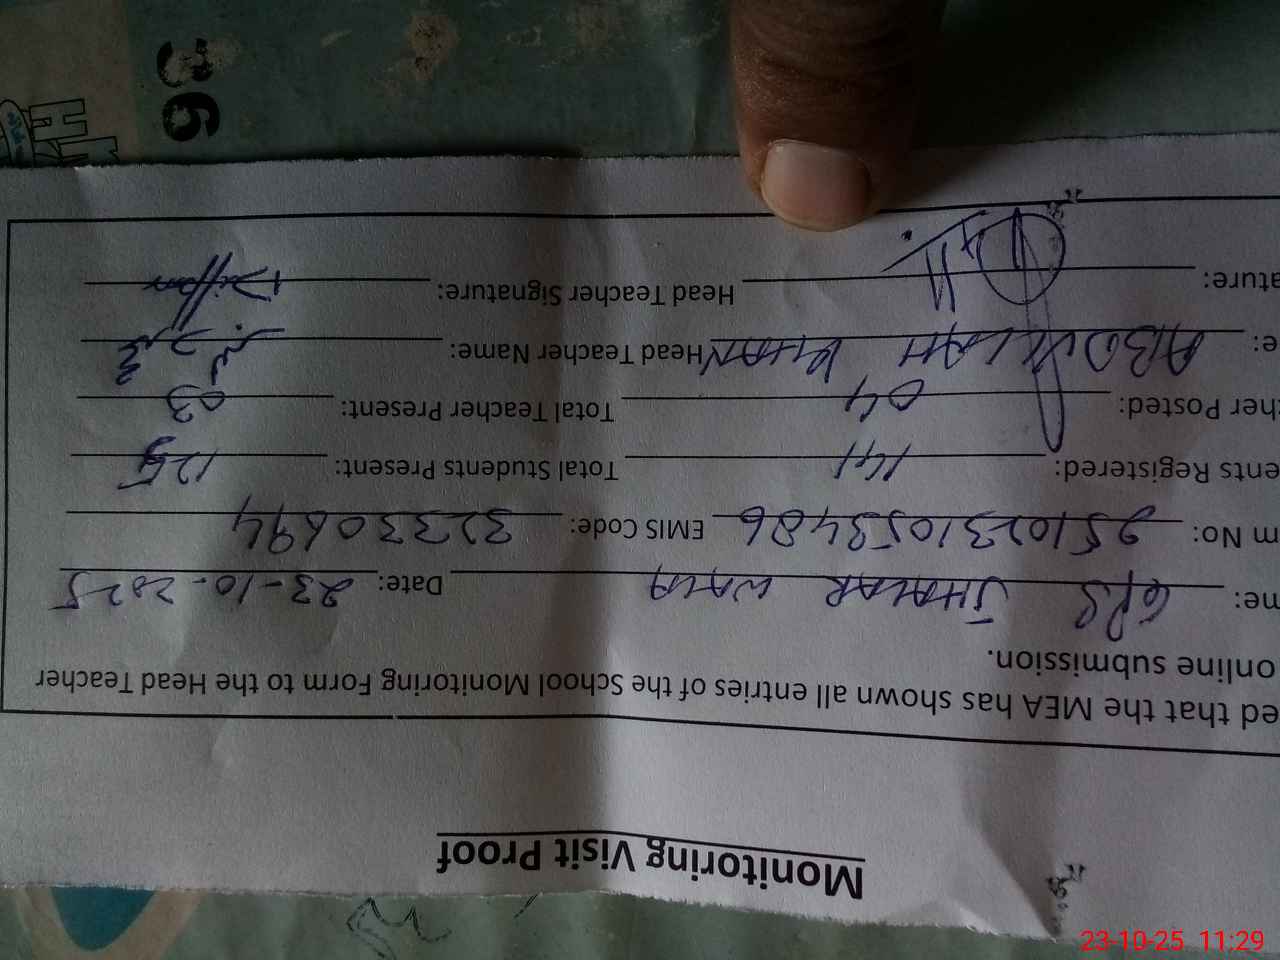 Monitoring Visit Proof
ed that the MEA has shown all entries of the School Monitoring Form to the Head Teacher
online submission.
me: GPS JHALAR WALA Date: 23-10-2025
m No: 2510231058486 EMIS Code: 32330694
ents Registered: 141 Total Students Present: 125
her Posted: 04 Total Teacher Present: 03
e: ABDULLAH KHAN Head Teacher Name:
ature: Head Teacher Signature:
36
23-10-25 11:29